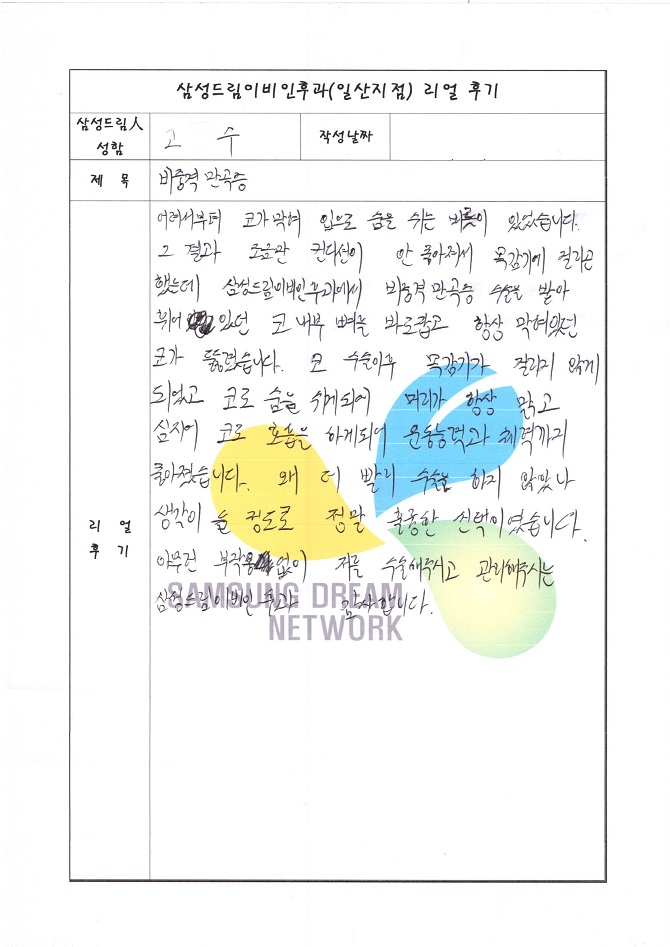 삼성드림이비인후과(일산지점) 리얼 후기
삼성드림人
성함
고 수
작성날짜
제 목
비중격 만곡증
어려서부터 코가 막혀 입으로 숨을 쉬는 버릇이 있었습니다.
그 결과 조금만 컨디션이 안 좋아져서 목감기에 걸리곤
했는데 삼성드림이비인후과에서 비중격 만곡증 수술을 받아
휘어 있던 코 내부 뼈를 바로잡고 항상 막혀있던
코가 뚫렸습니다. 코 수술이후 목감기가 걸리지 않게
되었고 코로 숨을 쉬게되어 머리가 항상 맑고
심지어 코로 호흡을 하게되어 운동능력과 체력까지
좋아졌습니다. 왜 더 빨리 수술을 하지 않았나
생각이 들 정도로 정말 훌륭한 선택이였습니다.
아무런 부작용없이 저를 수술해주시고 관리해주시는
삼성드림이비인후과 감사합니다.
리 얼
후 기
SAMSUNG DREAM
NETWORK